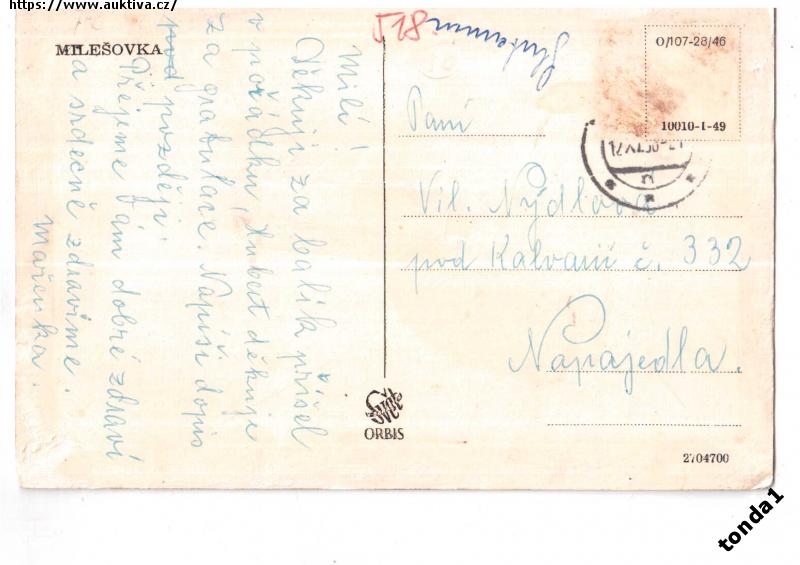 https://www.auktiva.cz/
MILEŠOVKA
Milí!
Děkuji za balík přišel
v pořádku, Hubert děkuje
za gratulace. Napíši dopis
později.
Přejeme Vám dobré zdraví
a srdečně zdravíme.
Mařenka.
518
O/107-28/46
10010-I-49
Paní
Vil. Nýdlová
pod Kalvarií č. 332
Napajedla.
Svět
ORBIS
2704700
tonda1